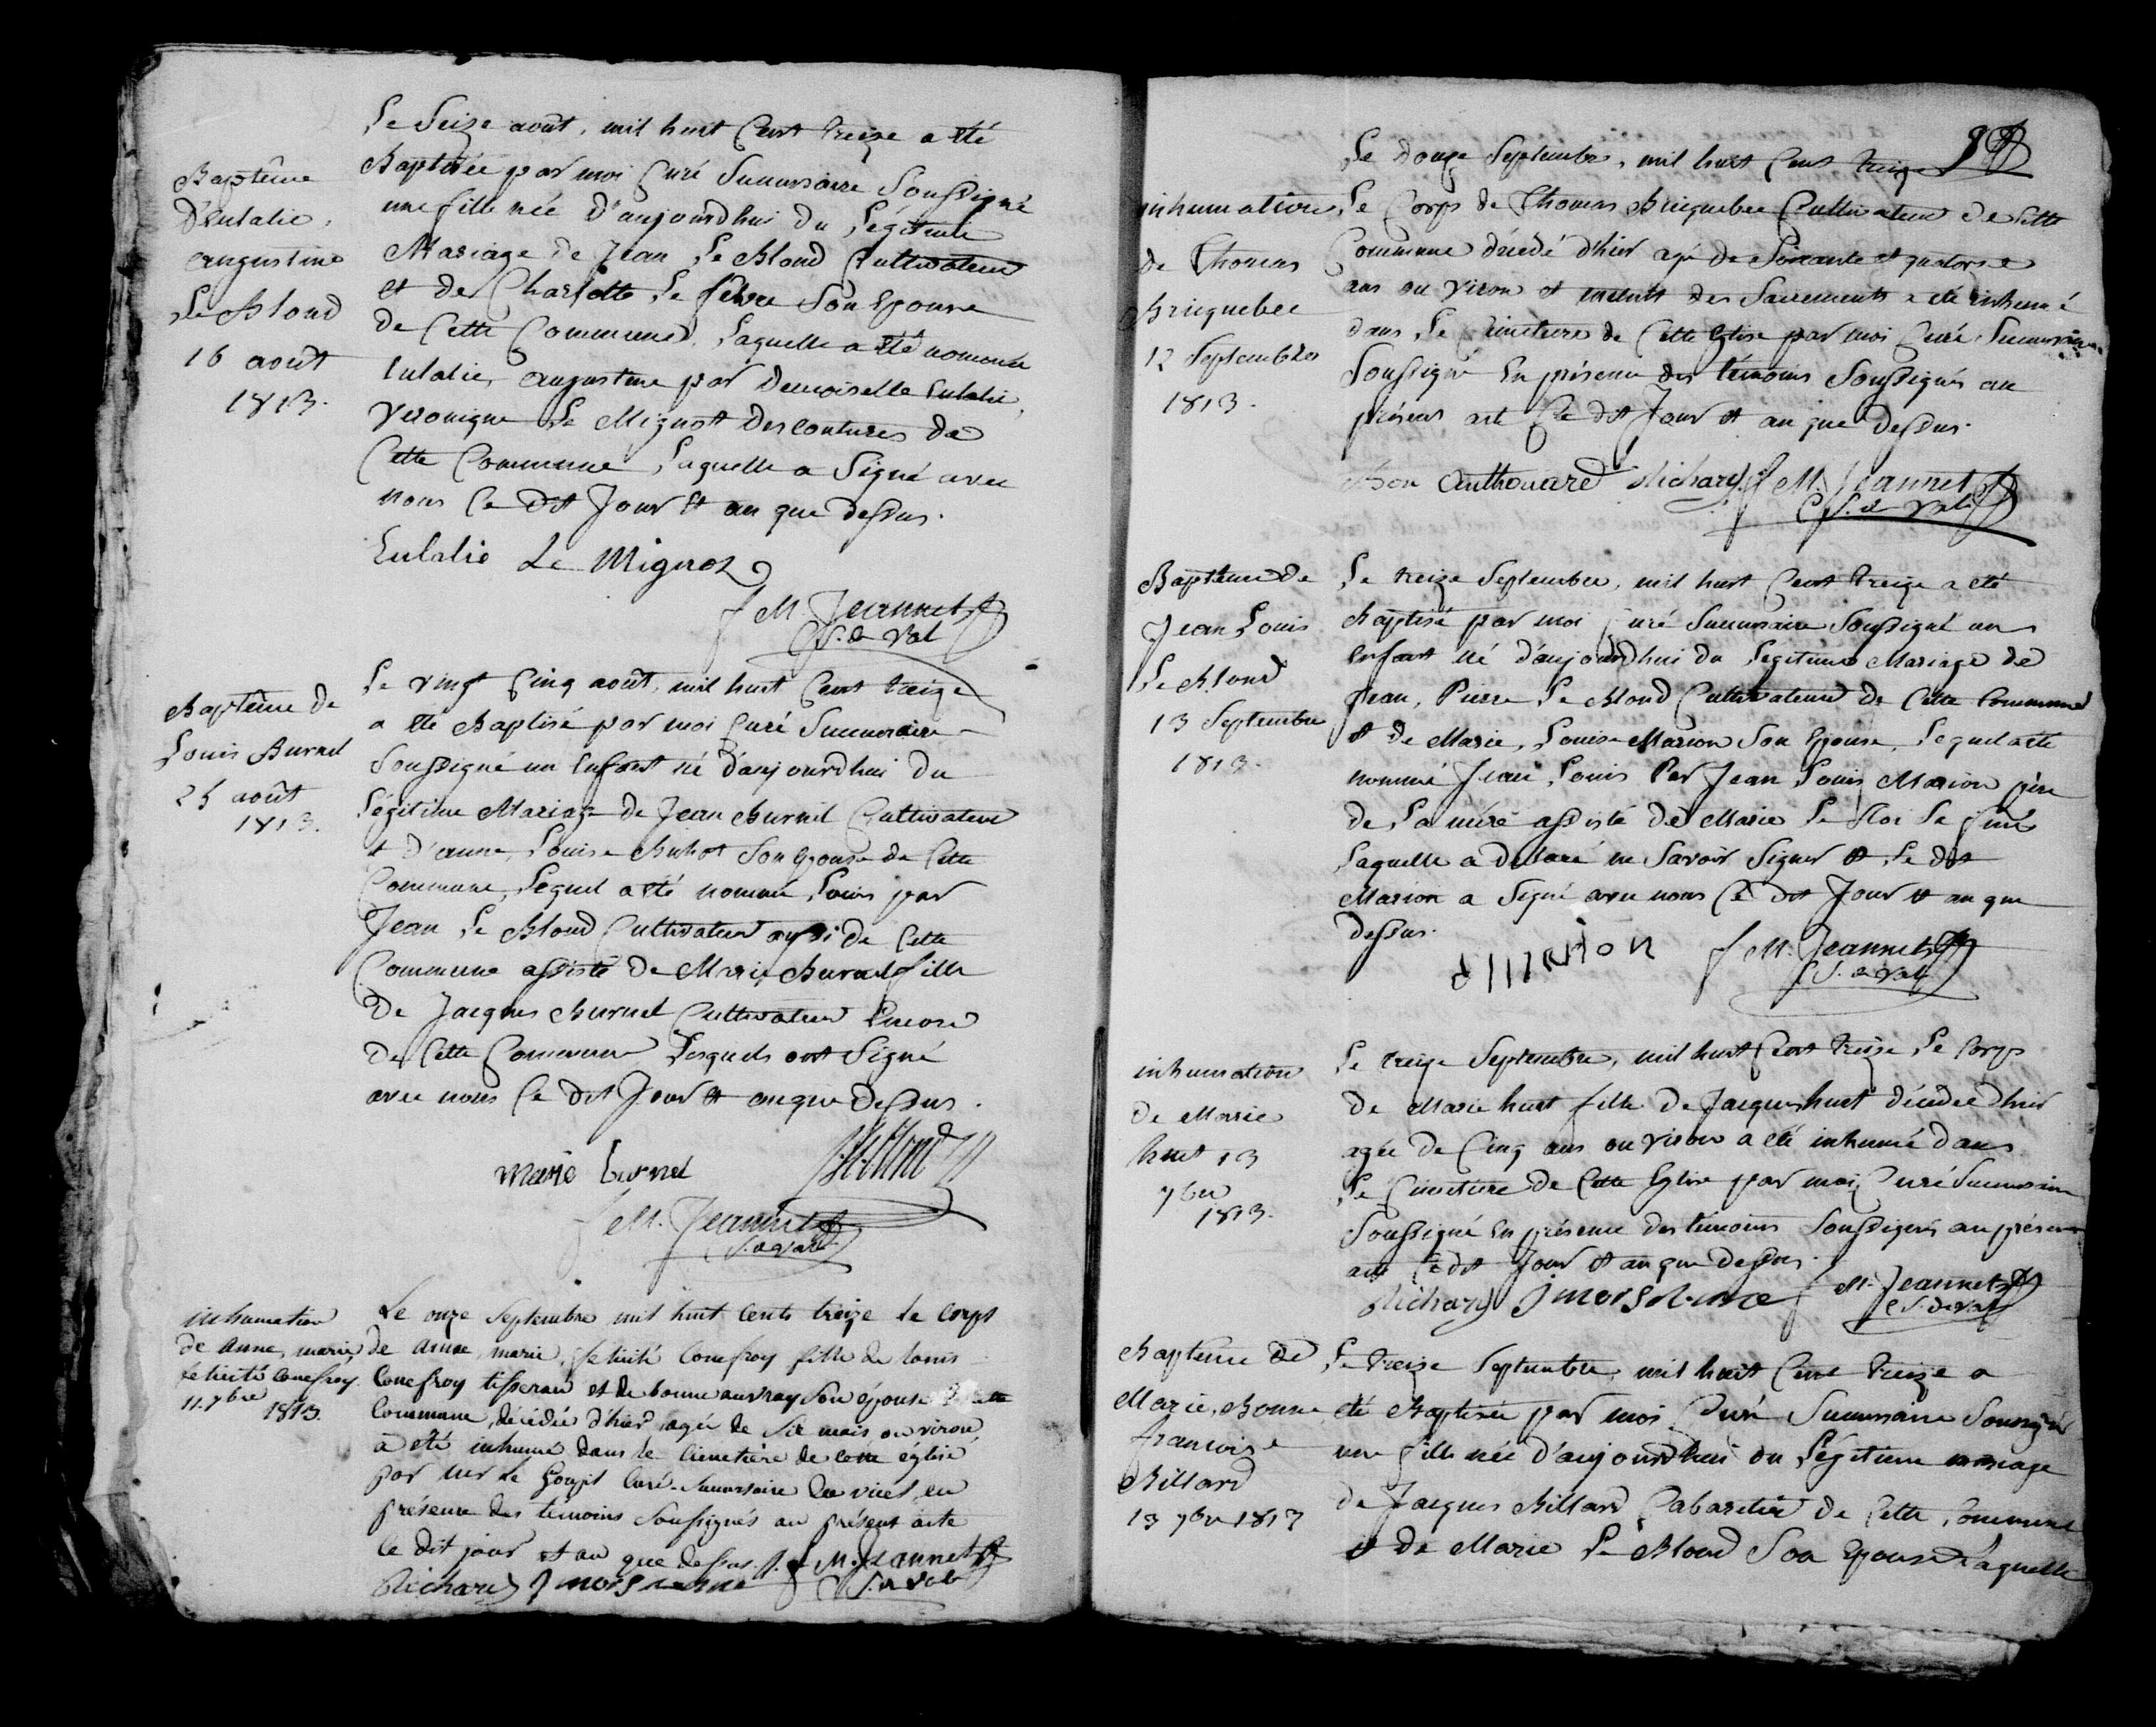 Baptême
d'Eulalie,
augustine
Le Blond
16 août
1813.
Le Seize août, mil huit Cent treize a été
Baptisée par moi Curé Succursaire Soussigné
une fille née d'aujourdhui du Légitime
Mariage de Jean Le Blond Cultivateur
et de Charlotte Le febvre Son Epouse
de Cette Commune, Laquelle a été nommée
Eulalie, augustine par Demoiselle Eulalie,
Veronique Le Mignot Descoutures de
Cette Commune Laquelle a Signé avec
nous Ce dit Jour et an que dessus.
Eulalie Le Mignot
f M. Jeannet
C. S. de Val
Baptême de
Louis Burnel
25 août
1813.
Le vingt Cinq août, mil huit Cent treize
a été Baptisé par moi Curé Succursaire
Soussigné un Enfant né d'aujourdhui du
Légitime Mariage de Jean Burnel Cultivateur
et d'anne, Louise Buhot Son Epouse de Cette
Commune, Lequel a été nommé Louis par
Jean Le Blond Cultivateur aussi de Cette
Commune assisté de Marie Burnel fille
de Jacques Burnel Cultivateur Encore
de Cette Commune Lesquels ont Signé
avec nous Ce dit Jour et an que dessus.
marie burnel
f M. Jeannet
inhumation
de Anne, marie,
felicité Couefroy
11. 7bre
1813.
Le onze Septembre mil huit cents treize le corps
de Anne, marie, felicité Couefroy fille de louis
Couefroy tisserand et de bonne auvray Son épouse de cette
Commune, décédée d'hier, agée de six mois ou viron,
a été inhumé dans le cimetière de cette église
par mr Le Goupil Curé-Succursaire du vicel, en
présence des témoins Soussignés au présent acte
ce dit jour et an que dessus. f. M. Jeannet
Richard
C. S. de Val
inhumation
de Thomas
Bricquebec
12 Septembre
1813.
Le douze Septembre, mil huit Cent treize
Le Corps de Thomas Bricquebec Cultivateur de Cette
Commune décédé d'hier agé de Soixante et quatorze
ans ou viron et muni des Sacrements a été inhumé
dans Le Cimetiere de Cette Eglise par moi Curé Succursaire
Soussigné En présence des témoins Soussignés au
présent acte Ce dit Jour et an que dessus.
Authouard Richard f M. Jeannet
C. S. de Val
Baptême de
Jean Louis
Le Blond
13 Septembre
1813.
Le treize Septembre, mil huit Cent treize a été
Baptisé par moi Curé Succursaire Soussigné un
Enfant né d'aujourdhui du Legitime Mariage de
Jean, Pierre Le Blond Cultivateur de Cette Commune
et de Marie, Louise Marion Son Epouse, Lequel a été
nommé Jean, Louis Par Jean Louis Marion père
de La mére assisté de Marie Le
Laquelle a déclaré ne Savoir Signer et Le dit
Marion a Signé avec nous Ce dit Jour et an que
dessus.
f M. Jeannet
C. S. de Val
inhumation
de Marie
huet 13
7bre
1813.
Le treize Septembre, mil huit Cent treize Le Corps
de Marie huet fille de Jacques huet décédée d'hier
agée de Cinq ans ou viron a été inhumé dans
Le Cimetiere de Cette Eglise par moi Curé Succursaire
Soussigné En présence des témoins Soussignés au présent
acte Ce dit Jour et an que dessus.
Richard f M. Jeannet
C. S. de Val
Baptême de
Marie, Bonne
francoise
Billard
13 7bre 1813
Le treize Septembre, mil huit Cent treize a
été Baptisée par moi Curé Succursaire Soussigné
une fille née d'aujourdhui du Légitime mariage
de Jacques Billard Cabaretier de Cette Commune
et de Marie Le Blond Son Epouse Laquelle